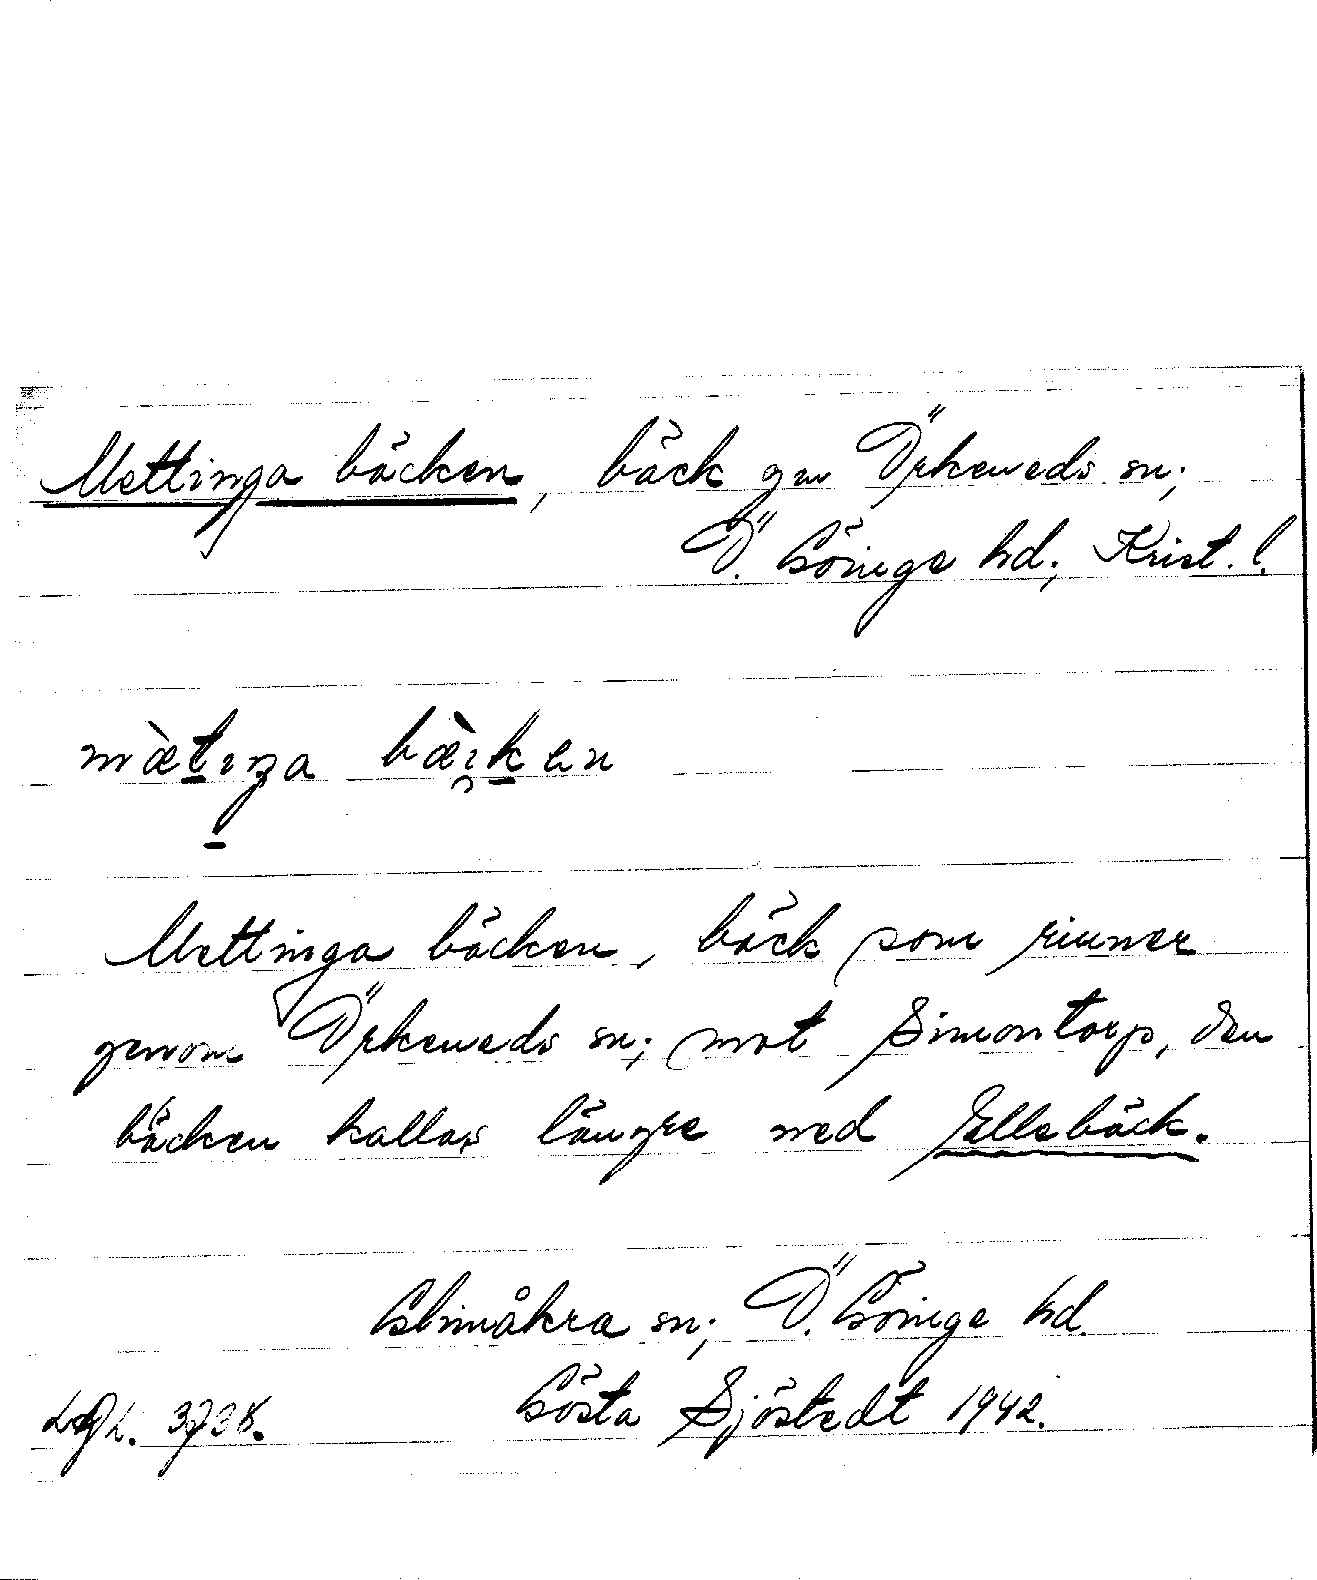 Mettinga bäcken, bäck gm Örkeneds sn;
Ö. Göinge hd; Krist. l.
mæ̀tıŋa bæ̀ı̯kan
Mettinga bäcken, bäck som rinner
genom Örkeneds sn; mot Simontorp, den
bäcken kallas längre ned Ellebäck.
Glimåkra sn; Ö. Göinge hd.
Gösta Sjöstedt 1942.
3738.